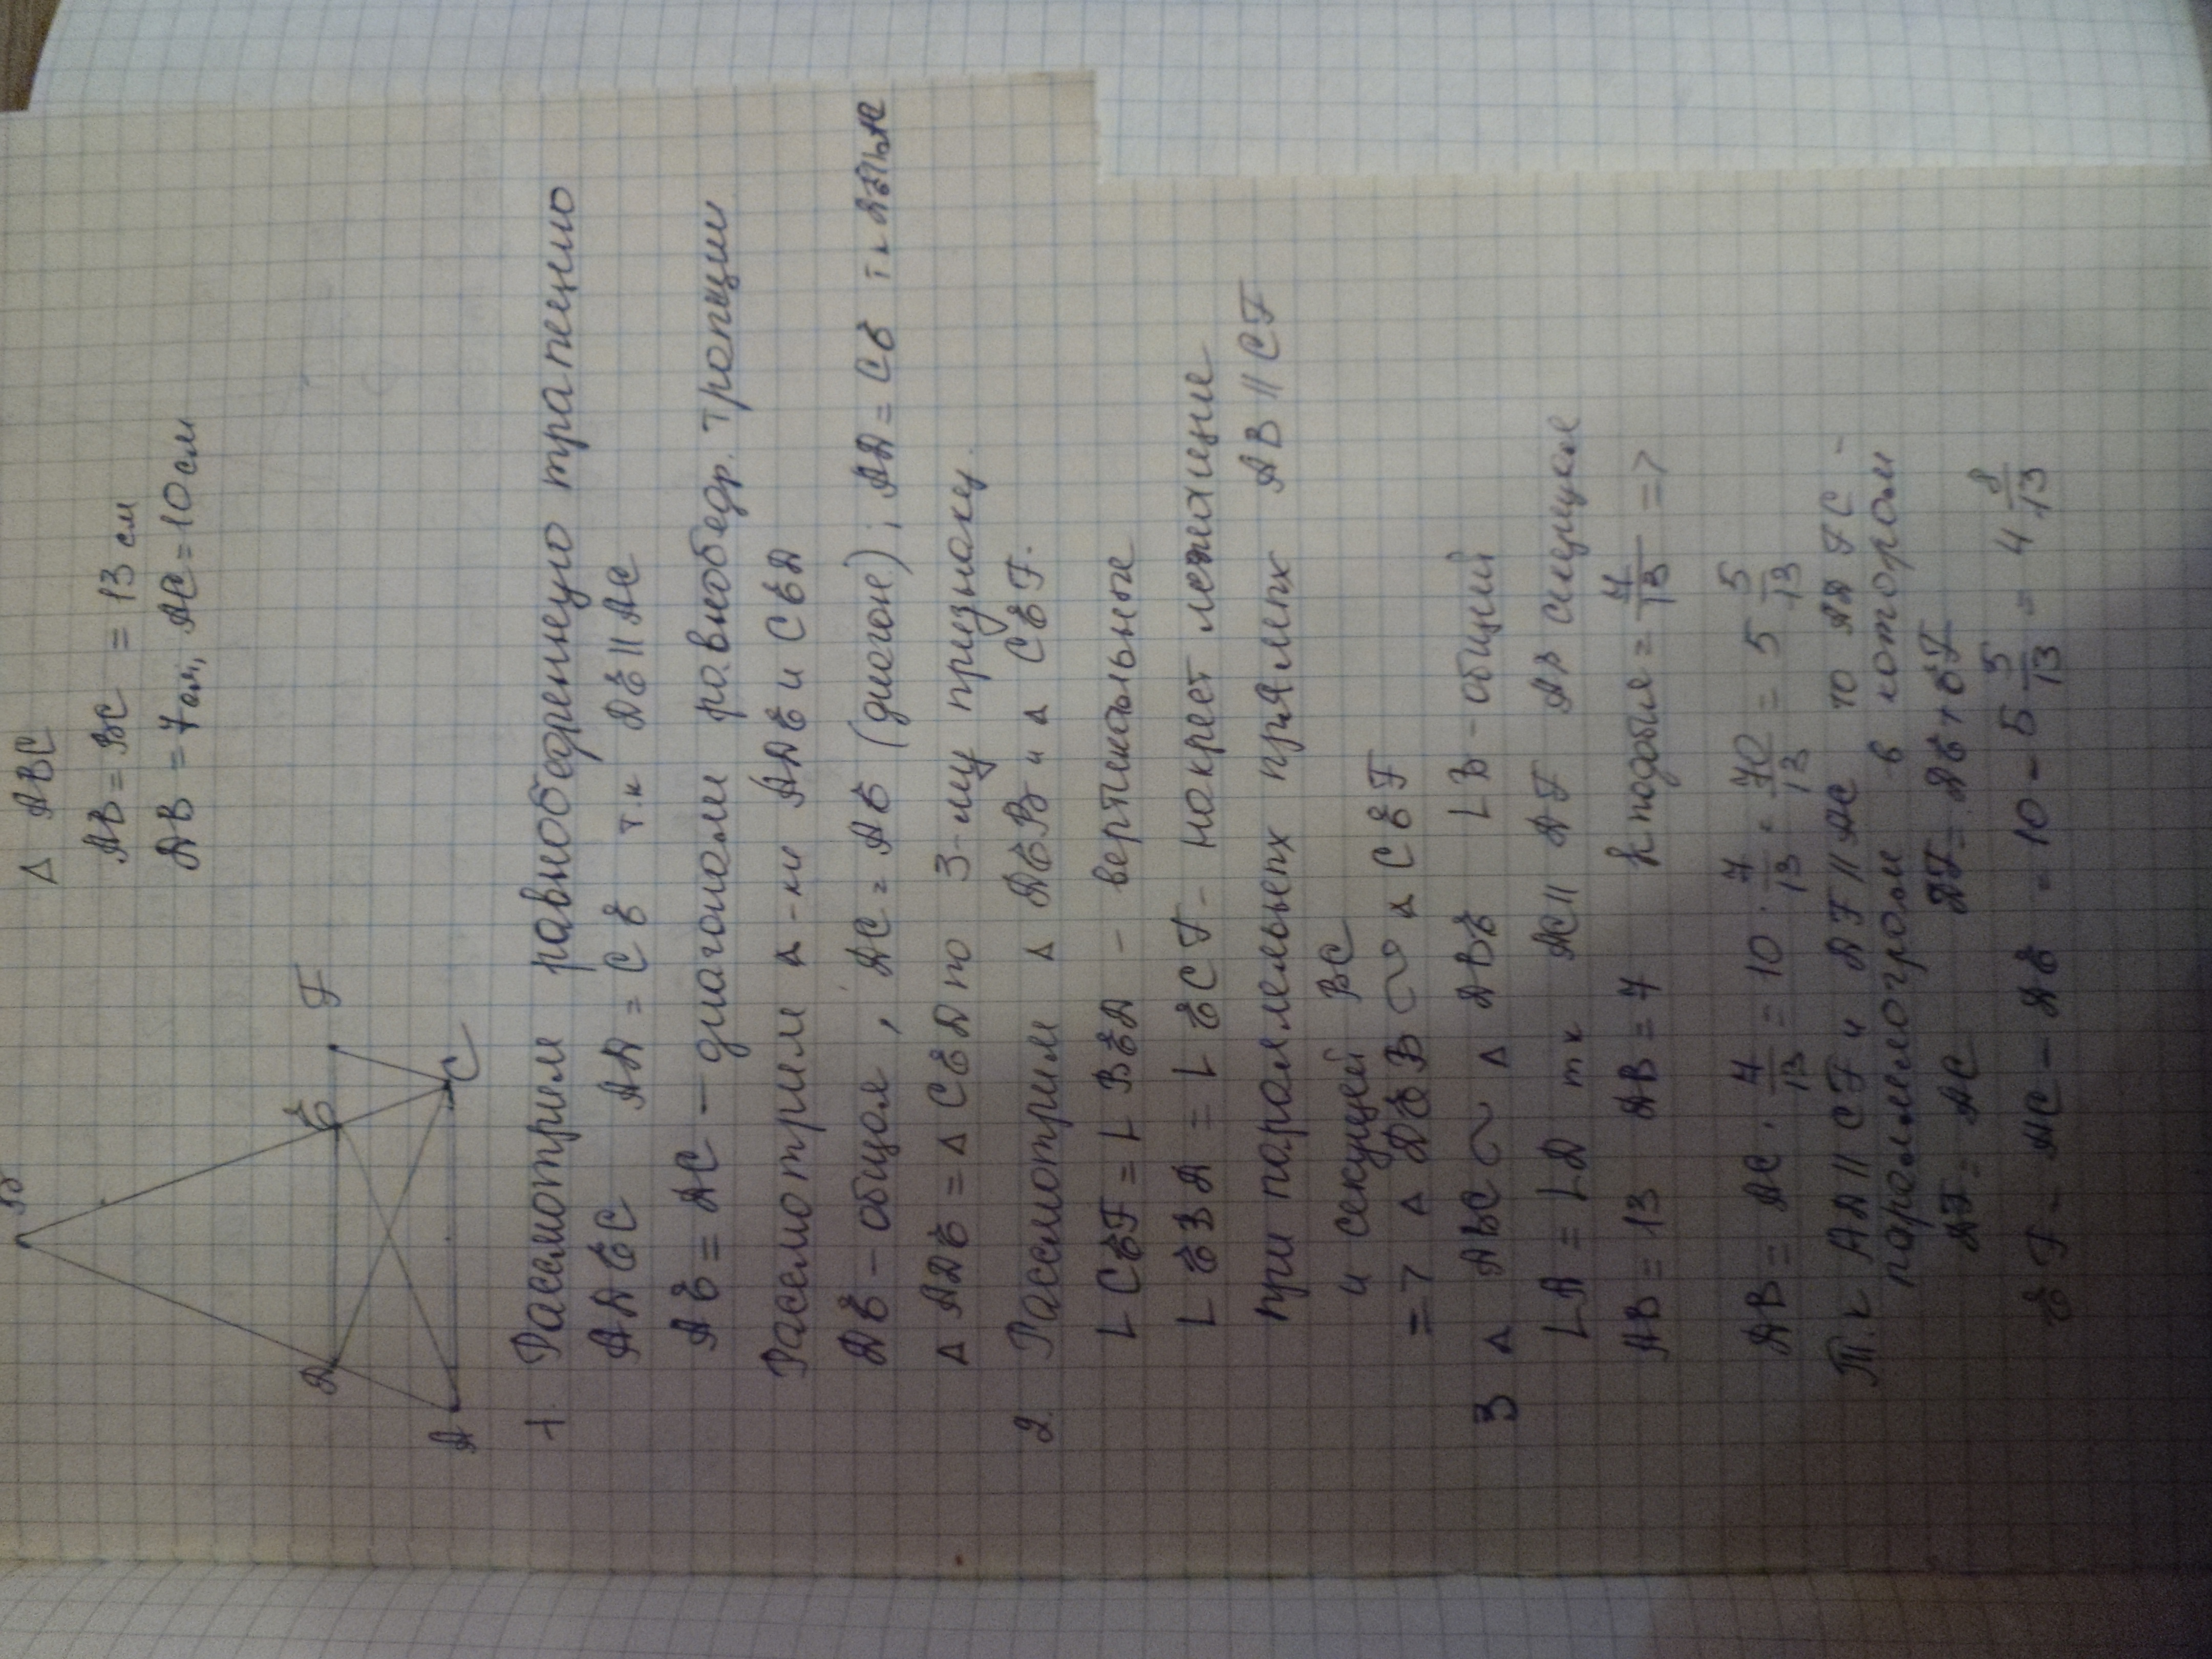 Δ ABC
AB = BC = 13 см
DB = 7 см, AC = 10 см
B
D
E
F
A
C
1. Рассмотрим равнобедренную трапецию
ADEC AD = CE т.к DE || AC
AE = DC – диагонали равнобедр. трапции
Рассмотрим Δ-ки ADE и CED
DE – общая, DC = AE (диагон); AD = CE т.к
Δ ADE = Δ CED по 3-му признаку.
2. Рассмотрим Δ DEB и Δ CEF.
∟CEF = ∟BED – вертикальные
∟EBD = ∟ECF – накрест лежащие
при параллельных прямых AB || CF
и секущей BC
=> Δ DEB ∾ Δ CEF
3 Δ ABC ∾ Δ DBE ∟B – общий
∟A = ∟D тк AC || DF AB секущая
AB = 13 DB = 7 k подобия = 7/13 =>
DB = AC · 7/13 = 10 · 7/13 = 70/13 = 5 5/13
Т.к AD || CF и DF || AC то AD FC -
параллелограмм в котором
DF = AC DF = DE + EF
EF = AC - DE = 10 - 5 5/13 = 4 8/13